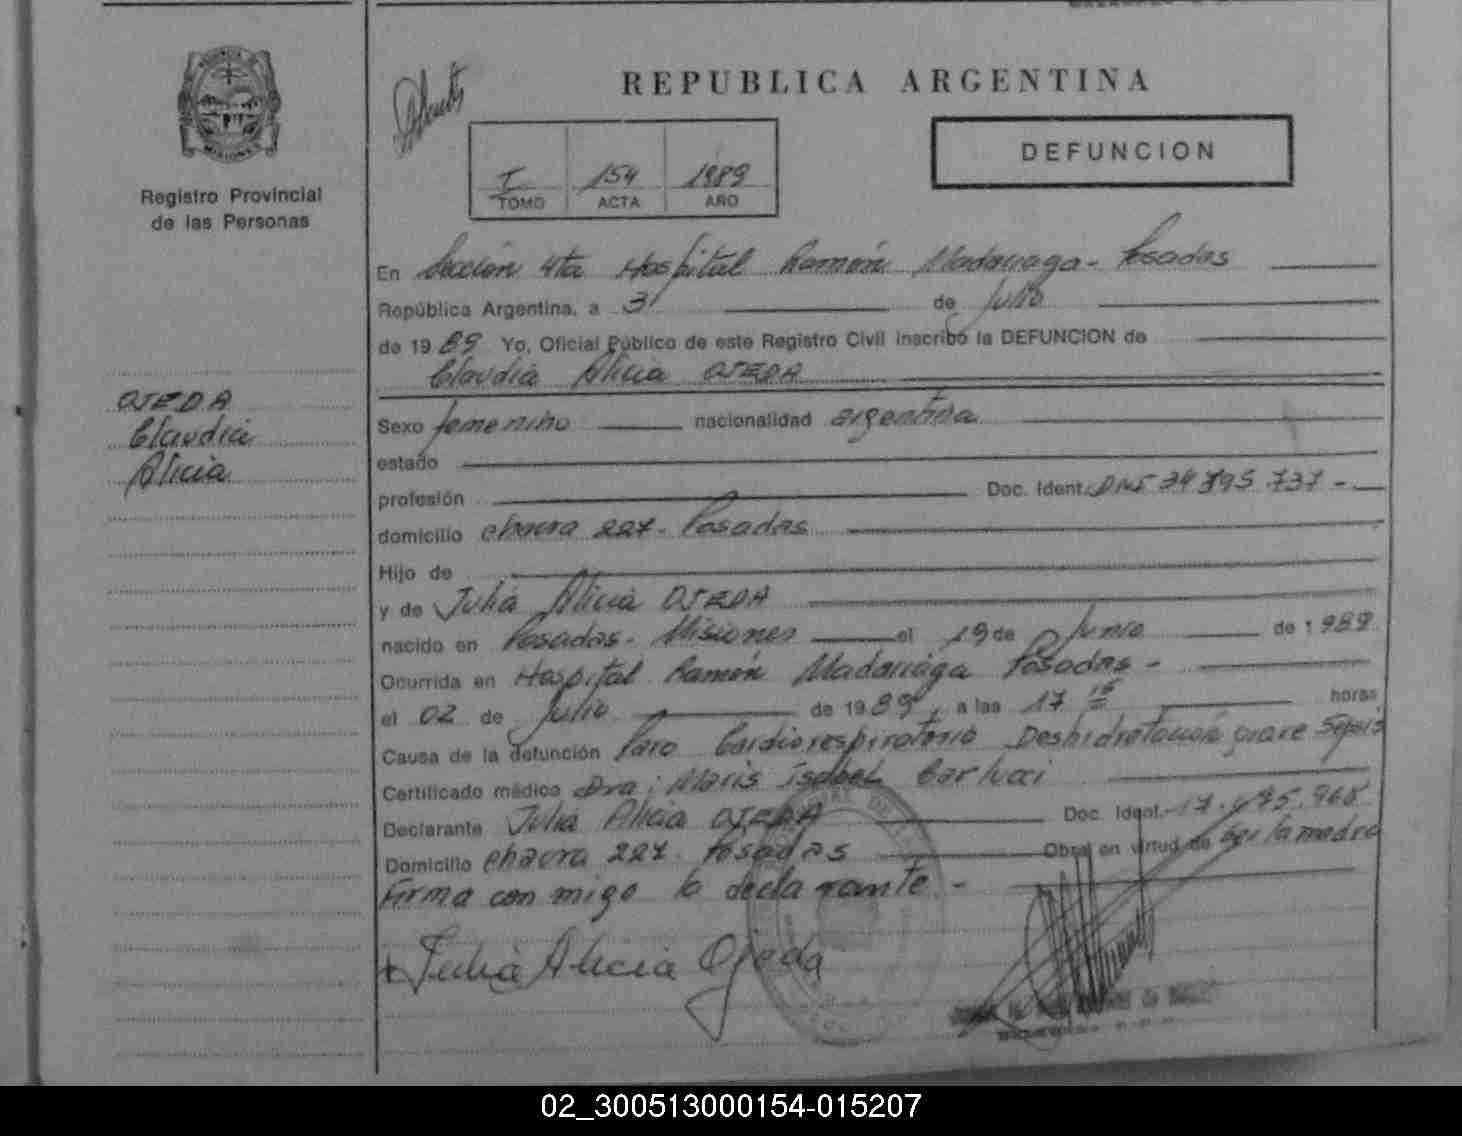 REPUBLICA ARGENTINA
DEFUNCION
I 154 1989
TOMO ACTA AÑO
MISIONES
Registro Provincial
de las Personas
OJEDA
Claudia
Alicia
En Sección 4ta Hospital Ramón Madariaga - Posadas
República Argentina, a 3 de Julio
de 1989 Yo, Oficial Público de este Registro Civil inscribo la DEFUNCION de
Claudia Alicia OJEDA
Sexo femenino nacionalidad argentina
estado
profesión Doc. Ident. DNI 34.795.737 -
domicilio chacra 227 - Posadas
Hijo de
y de Julia Alicia OJEDA
nacido en Posadas - Misiones el 19 de Junio de 1989
Ocurrida en Hospital Ramón Madariaga Posadas -
el 02 de Julio de 1989, a las 17 15 horas
Causa de la defunción Paro Cardiorespiratorio Deshidratación grave Sepsis
Certificado médico Dra: Maris Isabel Carlucci
Declarante Julia Alicia OJEDA Doc. Ident. 17.
Domicilio chacra 227 - Posadas Obra en virtud de ser la madre
Firma con migo la declarante -
Julia Alicia Ojeda
02_300513000154-015207